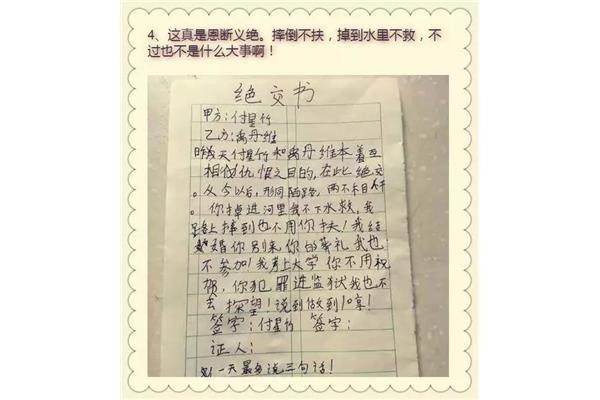 4、这真是恩断义绝。摔倒不扶，掉到水里不救，不
过也不是什么大事啊！
绝交书
甲方：付星竹
乙方：禹丹维
昨天付星竹和禹丹维本着互
相仇恨之目的，在此绝交
。从今以后，形同陌路，两不相
。你掉进河里我不下水救，我
路上摔到也不用你扶！我结
婚你别来你的葬礼我也
不参加！我考上大学你不用祝
贺，你犯罪进监狱我也不
去探望！说到做到
签字：付星竹 签字：
证人：
一天最多说三句话！